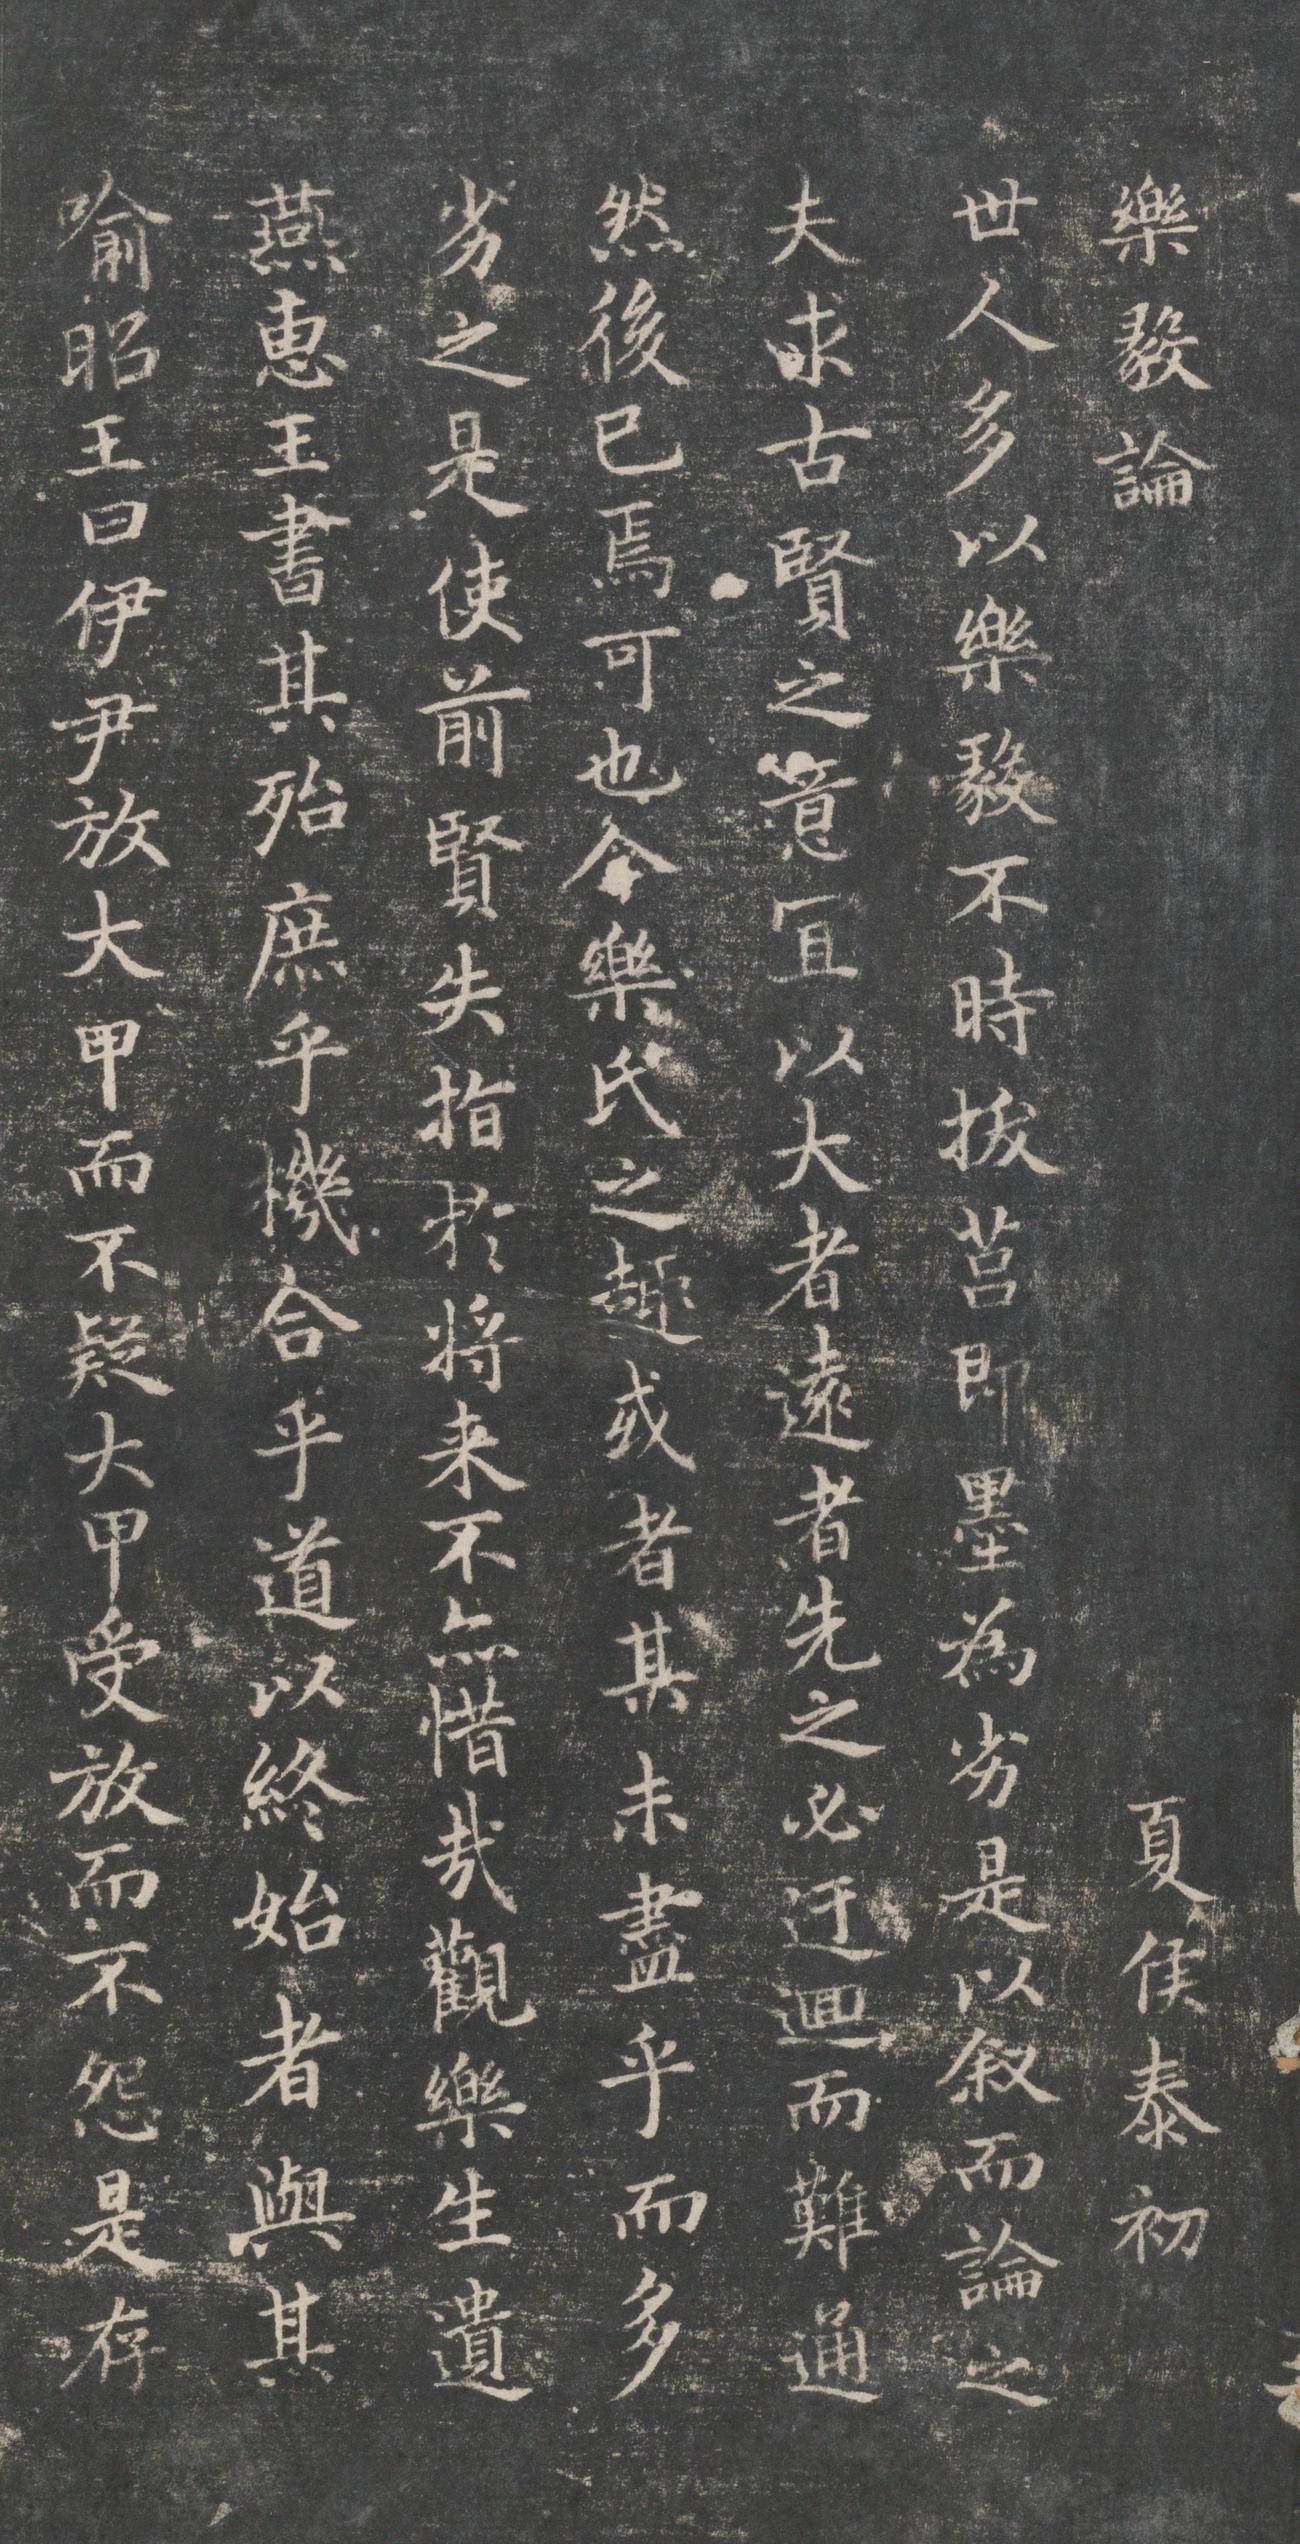 樂毅論　夏侯泰初
世人多以樂毅不時拔莒即墨為劣是以叙而論之
夫求古賢之意冝以大者遠者先之必迂迴而難通
然後已焉可也今樂氏之趣或者其未盡乎而多
劣之是使前賢失指於將来不亦惜哉觀樂生遺
燕惠王書其殆庶乎機合乎道以終始者與其
喻昭王曰伊尹放大甲而不疑大甲受放而不怨是存